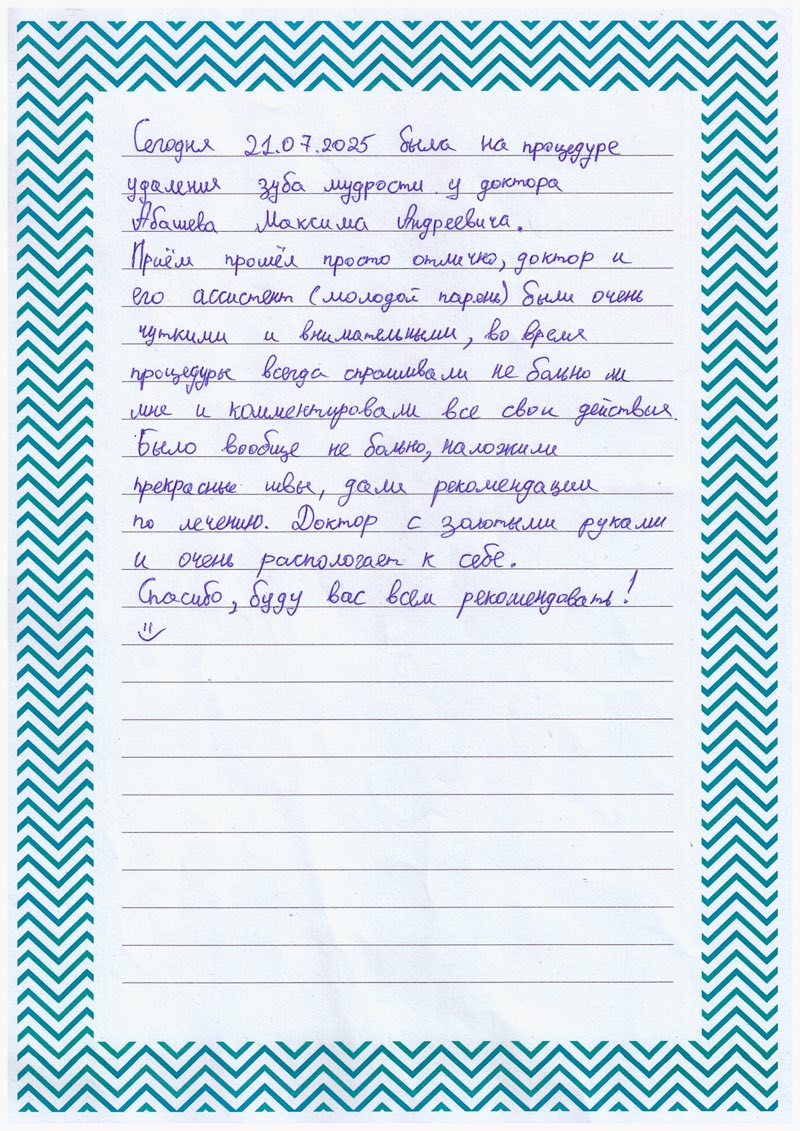 Сегодня 21.07.2025 была на процедуре
удаления зуба мудрости у доктора
Абашева Максима Андреевича.
Приём прошёл просто отлично, доктор и
его ассистент (молодой парень) были очень
чуткими и внимательными, во время
процедуры всегда спрашивали не больно ли
мне и комментировали все свои действия.
Было вообще не больно, наложили
прекрасные швы, дали рекомендации
по лечению. Доктор с золотыми руками
и очень распологает к себе.
Спасибо, буду вас всем рекомендовать!